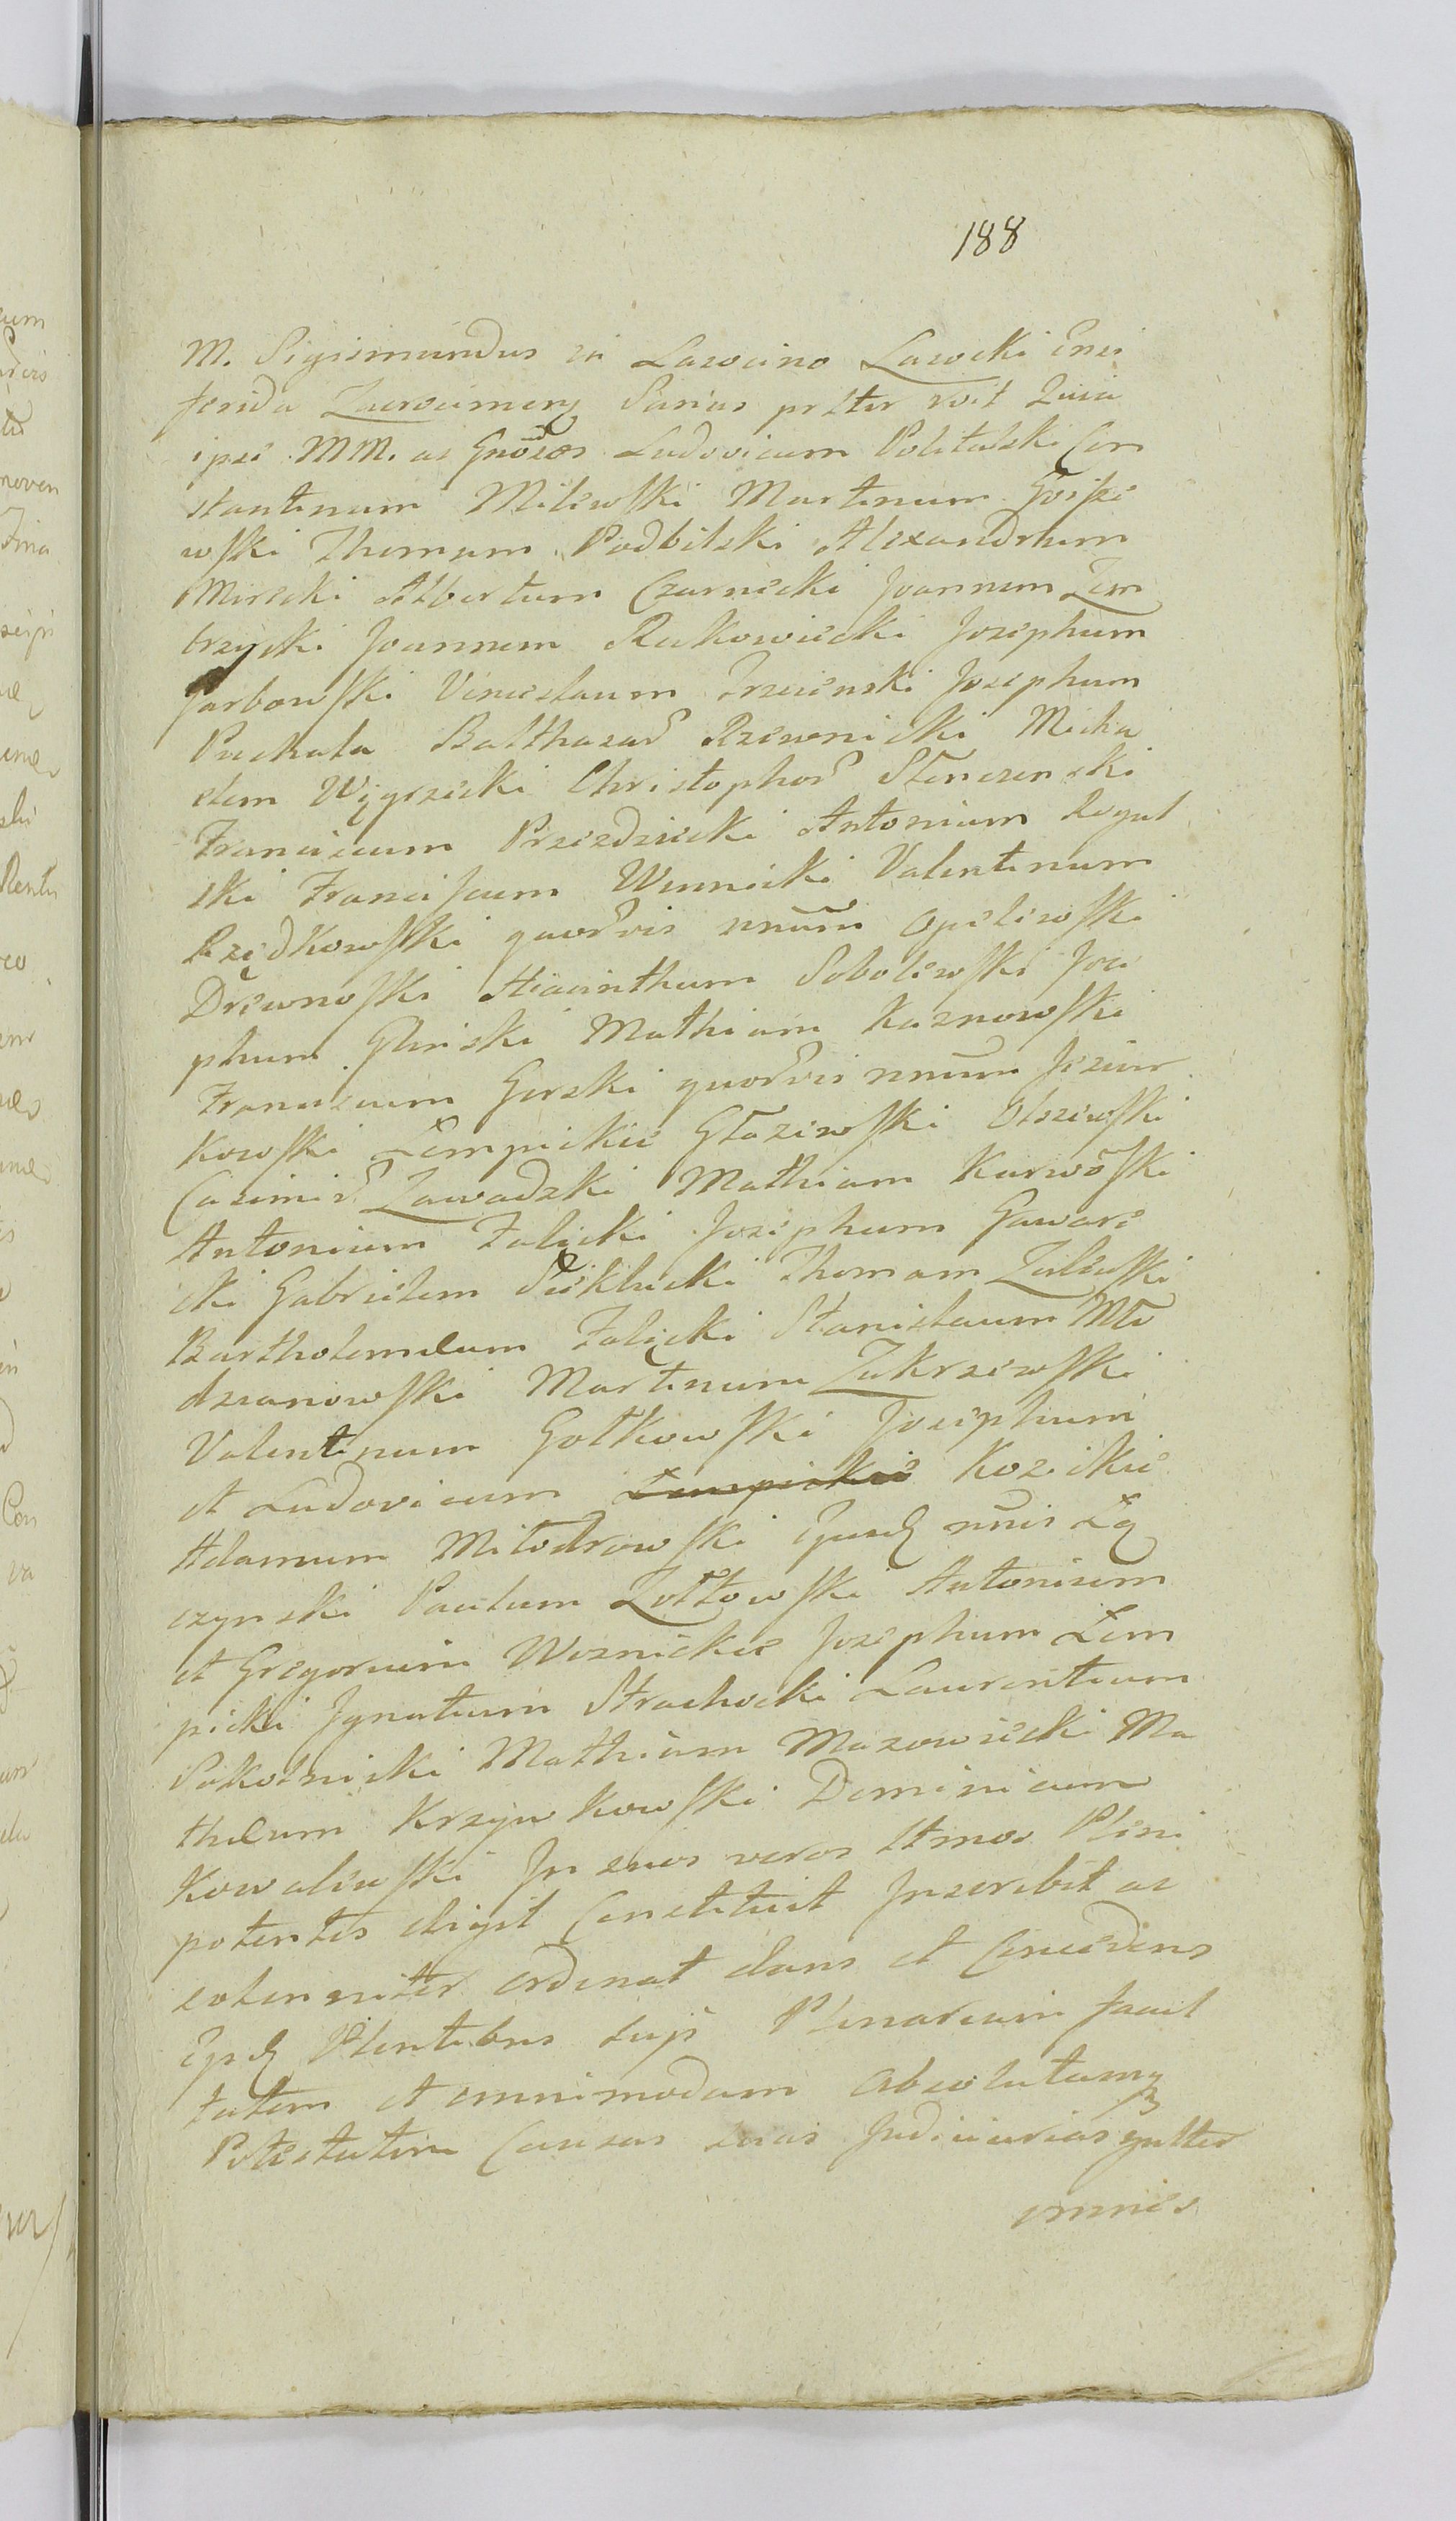 188
M. Sigismundus in Lasocino Lasocki Ensi
ferida Zacroczimeng Sanas prltr roit Quia
ipse MM. ac Gnosos Ludovicum Politalski Con
stantinum Milewski Martinum Goisze
wski Thomam Podbilski Alexandrum
Mirecki Albertum Czarnecki Joannem Zem
brzycki Joannem Rakowiecki Josephum
Garbowski Venceslaum Trzcienski Josephum
Puchala Balthazar Rzewnicki Micha
elem Węgrzecki Christophor Slenczenski
Franciscum Przezdziecki Antonium Rogul
ski Franciscum Winnicki Valentinum
Rzędkowski quorvis nnum Opelewski
Drewnoski Hiacinthum Sobolewski Jose
phum Glinski Mathiam Kaznowski
Franciscum Gorski quorvis nnum
kowski Łempickie Głazewski Olszewski
Casimir Zawadzki Mathiam Karwoski
Antonium Falęcki Josephum Gaware
cki Gabrielem Thomam Zaleski
Bartholomeum Falęcki Stanislaum Mło
dzianowski Martinum Zakrzewski
Valentinum Gołkowski Josephum
et Ludovicum Łempickie Kozickie
Adamum Milodrowski nnis Łą
czynski Paulum Zołtowski Antonium
et Gregorium Woznickie Josephum Łem
picki Ignatium Strachocki Laurentium
Pokolnicki Mathiam Mazowiecki Ma
theum Krzywkowski Dominicum
Kowalewski In suos veros ltmos Pleni
potentes eligit Constituit Inscribit ac
solenniter ordinat dans et Concedens
Ipsis Plentibus suis Plenariam facul
tatem et omnimodam absolutamq
Potestatem Causas suas Judiciarias gnlter
omnes